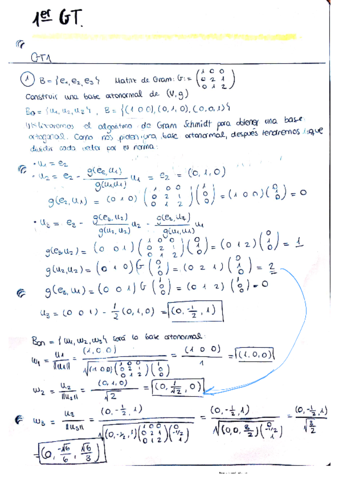 1er GT.
GT1
① B = {e₁, e₂, e₃} Matriz de Gram: G = (1 0 0 / 0 2 1 / 0 1 2)
Construir una base ortonormal de (V, g)
B = {(1 0 0), (0, 1, 0), (0, 0, 1)}
el algoritmo de Gram Schmidt para obtener una base
ortogonal. Como nos piden una base ortonormal, después tendremos que
dividir cada vector por su norma.
• u₁ = e₁
• u₂ = e₂ - g(e₂, u₁)/g(u₁, u₁) u₁ = e₂ = (0, 1, 0)
g(e₂, u₁) = (0 1 0) (1 0 0 / 0 2 1 / 0 1 2) (1 / 0 / 0) = 0
• u₃ = e₃ - g(e₃, u₂)/g(u₂, u₂) u₂ - g(e₃, u₁)/g(u₁, u₁) u₁
g(e₃, u₂) = (0 0 1) (1 0 0 / 0 2 1 / 0 1 2) (0 / 1 / 0) = (0 1 2) (0 / 1 / 0) = 1
g(u₂, u₂) = (0 1 0) G (0 / 1 / 0) = (0 2 1) (0 / 1 / 0) = 2
g(e₃, u₁) = (0 0 1) G (1 / 0 / 0) = (0 1 2) (1 / 0 / 0) = 0
u₃ = (0 0 1) - 1/2 (0, 1, 0) = (0, -1/2, 1)
Bon = {w₁, w₂, w₃} será la base ortonormal.
w₁ = u₁/||u₁|| = (1, 0, 0)/√((1 0 0) (1 0 0 / 0 2 1 / 0 1 2) (1 / 0 / 0)) = (1 0 0)/1 = (1, 0, 0)
w₂ = u₂/||u₂|| = (0, 1, 0)/√2 = (0, 1/√2, 0)
w₃ = u₃/||u₃|| = (0, -1/2, 1)/√((0, -1/2, 1) (1 0 0 / 0 2 1 / 0 1 2) (0 / -1/2 / 1)) = (0, -1/2, 1)/√((0, 0, 3/2) (0 / -1/2 / 1)) = (0, -1/2, 1)/√(3/2)
= (0, -√6/6, √6/3)